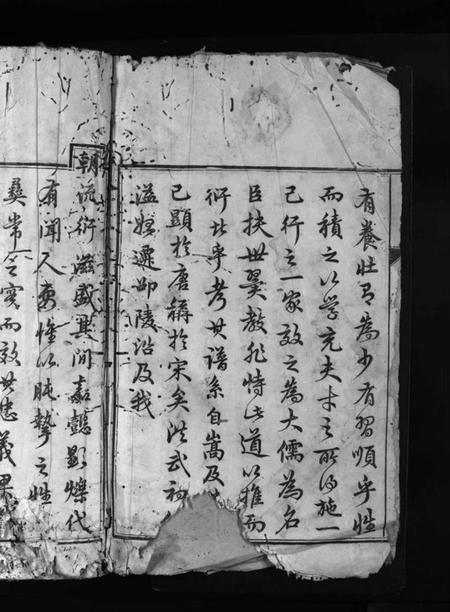 有養壯有為少有習順乎性
而積之以學充夫才之所得施一
己行之一家效之為大儒為名
臣扶世翼教非恃此道以推而
衍此乎考世譜系自嵩及
已顯於唐稱於宋矣洪武初
溢始遷邵陵沿及我
朝流衍滋盛其間嘉懿顯爍代
有聞人要惟以肫摯之性
彝常之實而效世忠義果